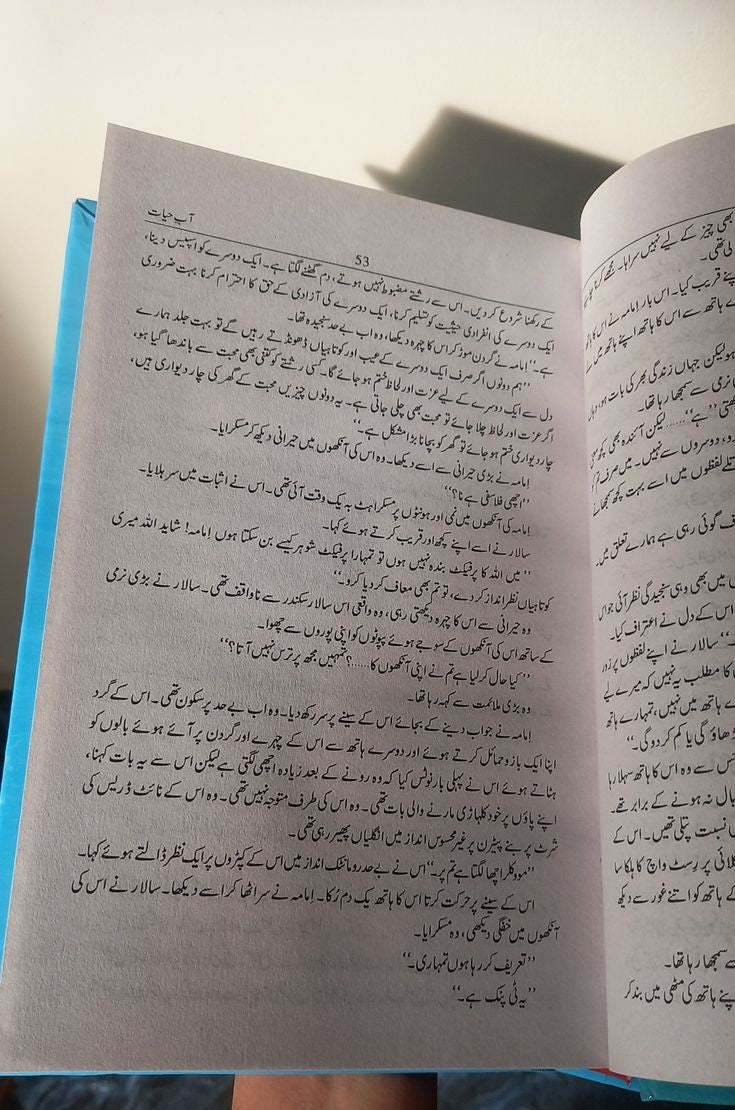 آب حیات
53
کے رکھنا شروع کر دیں۔ اس سے رشتے مضبوط نہیں ہوتے، دم گھٹنے لگتا ہے۔ ایک دوسرے کو اسپیس دینا،
ایک دوسرے کی انفرادی حیثیت کو تسلیم کرنا، ایک دوسرے کی آزادی کے حق کا احترام کرنا بہت ضروری
ہے۔‘‘ اِمامہ نے گردن موڑ کر اس کا چہرہ دیکھا، وہ اب بے حد سنجیدہ تھا۔
’’ہم دونوں اگر صرف ایک دوسرے کے عیب اور کوتاہیاں ڈھونڈتے رہیں گے تو بہت جلد ہمارے
دل سے ایک دوسرے کے لیے عزت اور لحاظ ختم ہو جائے گا۔ کسی رشتے کو کتنی بھی محبت سے باندھا گیا ہو،
اگر عزت اور لحاظ چلا جائے تو محبت بھی چلی جاتی ہے۔ یہ دونوں چیزیں محبت کے گھر کی چار دیواری ہیں،
چار دیواری ختم ہو جائے تو گھر کو بچانا بڑا مشکل ہے۔‘‘
اِمامہ نے بڑی حیرانی سے اسے دیکھا۔ وہ اس کی آنکھوں میں حیرانی دیکھ کر مسکرایا۔
’’اچھی فلاسفی ہے نا؟‘‘
اِمامہ کی آنکھوں میں نمی اور ہونٹوں پر مسکراہٹ بہ یک وقت آئی تھی۔ اس نے اثبات میں سر ہلایا۔
سالار نے اسے اپنے کچھ اور قریب کرتے ہوئے کہا۔
’’میں اللہ کا پرفیکٹ بندہ نہیں ہوں تو تمہارا پرفیکٹ شوہر کیسے بن سکتا ہوں اِمامہ! شاید اللہ میری
کوتاہیاں نظر انداز کر دے، تو تم بھی معاف کر دیا کرو۔‘‘
وہ حیرانی سے اس کا چہرہ دیکھتی رہی، وہ واقعی اس سالار سکندر سے ناواقف تھی۔ سالار نے بڑی نرمی
کے ساتھ اس کی آنکھوں کے سوجے ہوئے پپوٹوں کو اپنی پوروں سے چھوا۔
’’کیا حال کر لیا ہے تم نے اپنی آنکھوں کا.....؟ تمہیں مجھ پر ترس نہیں آتا؟‘‘
وہ بڑی ملائمت سے کہہ رہا تھا۔
اِمامہ نے جواب دینے کے بجائے اس کے سینے پر سر رکھ دیا۔ وہ اب بے حد پرسکون تھی۔ اس کے گرد
اپنا ایک بازو حمائل کرتے ہوئے اور دوسرے ہاتھ سے اس کے چہرے اور گردن پر آئے ہوئے بالوں کو
ہٹاتے ہوئے اس نے پہلی بار نوٹس کیا کہ وہ رونے کے بعد زیادہ اچھی لگتی ہے لیکن اس سے یہ بات کہنا،
اپنے پاؤں پر خود کلہاڑی مارنے والی بات تھی۔ وہ اس کی طرف متوجہ نہیں تھی۔ وہ اس کے نائٹ ڈریس کی
شرٹ پر بنے پیٹرن پر غیر محسوس انداز میں انگلیاں پھیر رہی تھی۔
’’موو کلر اچھا لگتا ہے تم پر۔‘‘ اس نے بے حد رومانٹک انداز میں اس کے کپڑوں پر ایک نظر ڈالتے ہوئے کہا۔
اس کے سینے پر حرکت کرتا اس کا ہاتھ یک دم رُکا۔ اِمامہ نے سر اٹھا کر اسے دیکھا۔ سالار نے اس کی
آنکھوں میں خفگی دیکھی، وہ مسکرایا۔
’’تعریف کر رہا ہوں تمہاری۔‘‘
’’یہ ٹی پنک ہے۔‘‘
بھی چیز کے لیے نہیں سراہا۔ مجھے کرنا چاہیے
لی تھی۔
پنے قریب کیا۔ اس بار اِمامہ نے اس کا ہاتھ
ے ہاتھ سے اس کا ہاتھ اپنے ہاتھ میں لے
ہو لیکن جہاں زندگی بھر کی بات ہو، وہاں
نرمی سے سمجھا رہا تھا۔
’’ہے‘‘..... لیکن آئندہ بھی کچھ
و، دوسروں سے نہیں۔ میں صرف تم کو
لفظوں میں اسے بہت کچھ سمجھانے
ف گوئی رہی ہے ہمارے تعلق میں۔
میں بھی وہی سنجیدگی نظر آئی جو اس
اس کے دل نے اعتراف کیا۔
۔‘‘ سالار نے اپنے لفظوں پر زور
کا مطلب یہ نہیں کہ میرے لیے
ے ہاتھ میں نہیں، تمہارے ہاتھ
ڑھاؤ گی یا کم کر دو گی۔‘‘
س سے وہ اس کا ہاتھ سہلا رہا
بال نہ ہونے کے برابر تھے۔
نسبت پتلی تھیں۔ اس کے
کلائی پر رِسٹ واچ کا ہلکا سا
کے ہاتھ کو اتنے غور سے دیکھ
سے سمجھا رہا تھا۔
پنے ہاتھ کی مٹھی میں بند کر